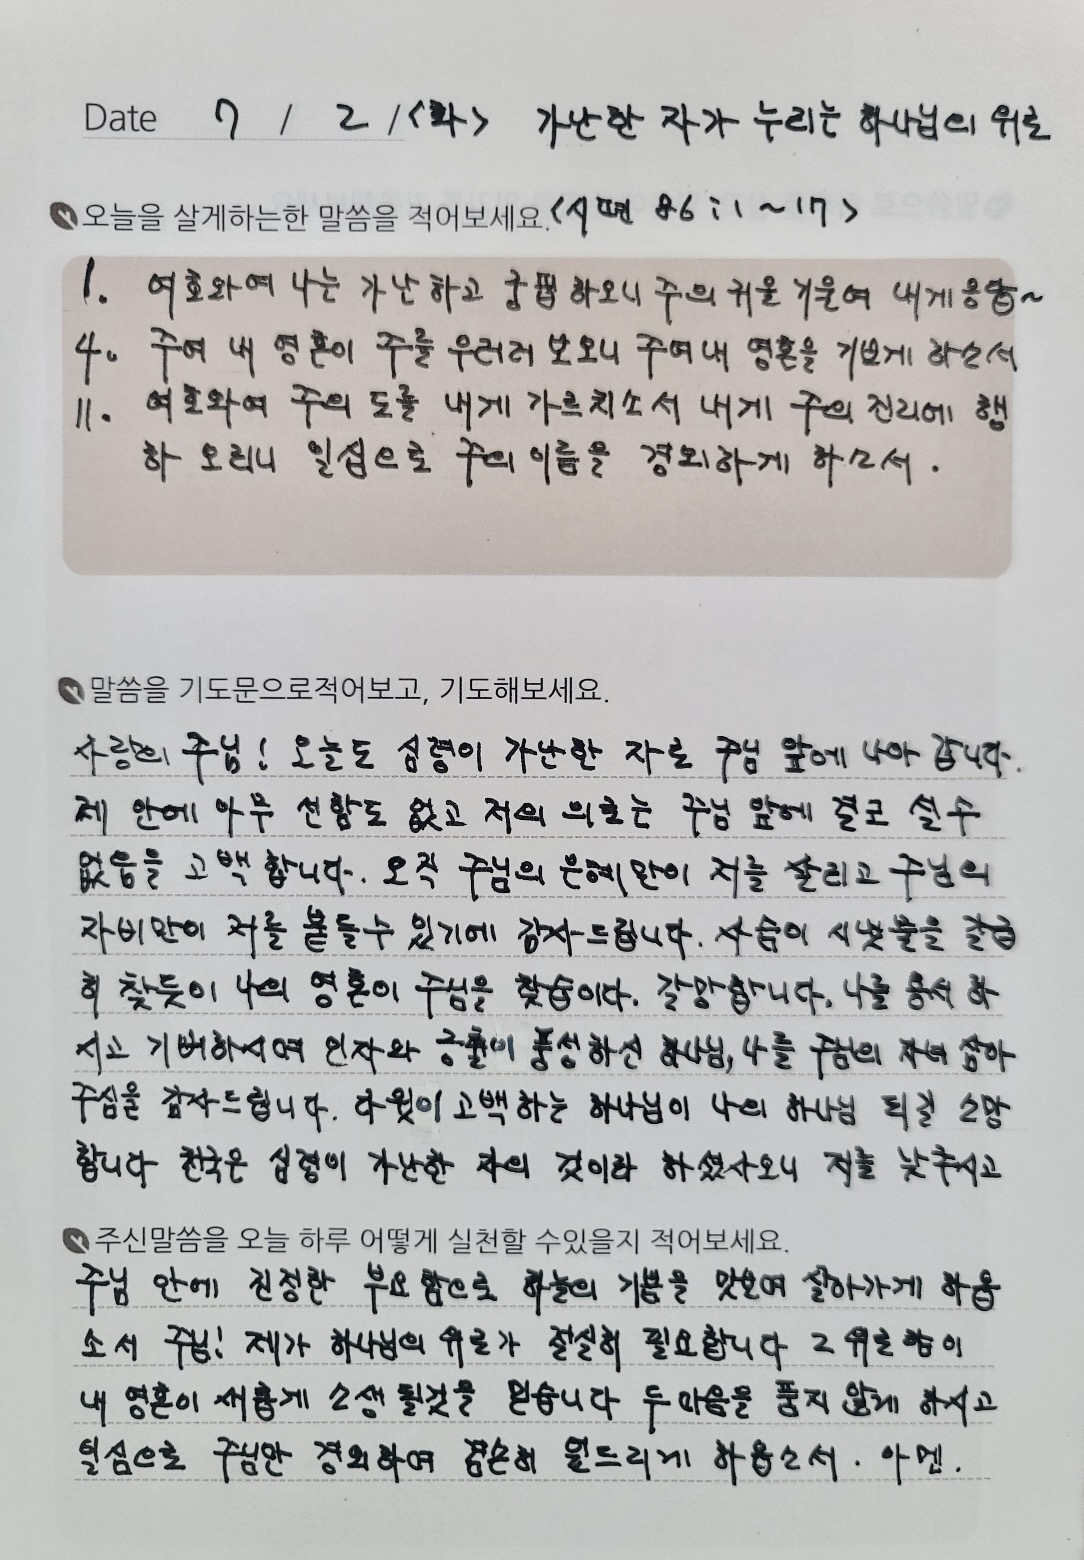 Date 7 / 2 /<화> 가난한 자가 누리는 하나님의 위로
오늘을 살게하는한 말씀을 적어보세요.<시편 86:1~17>
1. 여호와여 나는 가난하고 궁핍하오니 주의 귀를 기울여 내게응답~
4. 주여 내 영혼이 주를 우러러 보오니 주여내 영혼을 기쁘게 하소서
11. 여호와여 주의 도를 내게 가르치소서 내게 주의 진리에 행
하 오리니 일심으로 주의이름을 경외하게 하소서.
말씀을 기도문으로적어보고, 기도해보세요.
사랑의 주님! 오늘도 심령이 가난한 자로 주님 앞에 나아 갑니다.
제 안에 아무 선함도 없고 저의 의로는 주님 앞에 결코 설수
없음을 고백합니다. 오직 주님의 은혜만이 저를 살리고 주님의
자비만이 저를 붙들수 있기에 감사드립니다. 사슴이 시냇물을 갈급
히 찾듯이 나의 영혼이 주님을 찾습이다. 갈망합니다. 나를 용서 하
시고 기뻐하시며 인자와 긍휼이 풍성하신 하나님, 나를 주님의 자녀 삼아
주심을 감사드립니다. 다윗이 고백하는 하나님이 나의 하나님 되길 소망
합니다 천국은 심령이 가난한 자의 것이라 하셨사오니 저를 낮추시고
주신말씀을 오늘 하루 어떻게 실천할 수있을지 적어보세요.
주님 안에 진정한 부요함으로 하늘의 기쁨을 맛보며 살아가게 하옵
소서 주님! 제가 하나님의 위로가 절실히 필요합니다 그 위로함이
내 영혼이 새롭게 소생 될것을 믿습니다 두마음을 품지 않게 하시고
일심으로 주님만 경외하며 겸손히 엎드리게 하옵소서. 아멘.